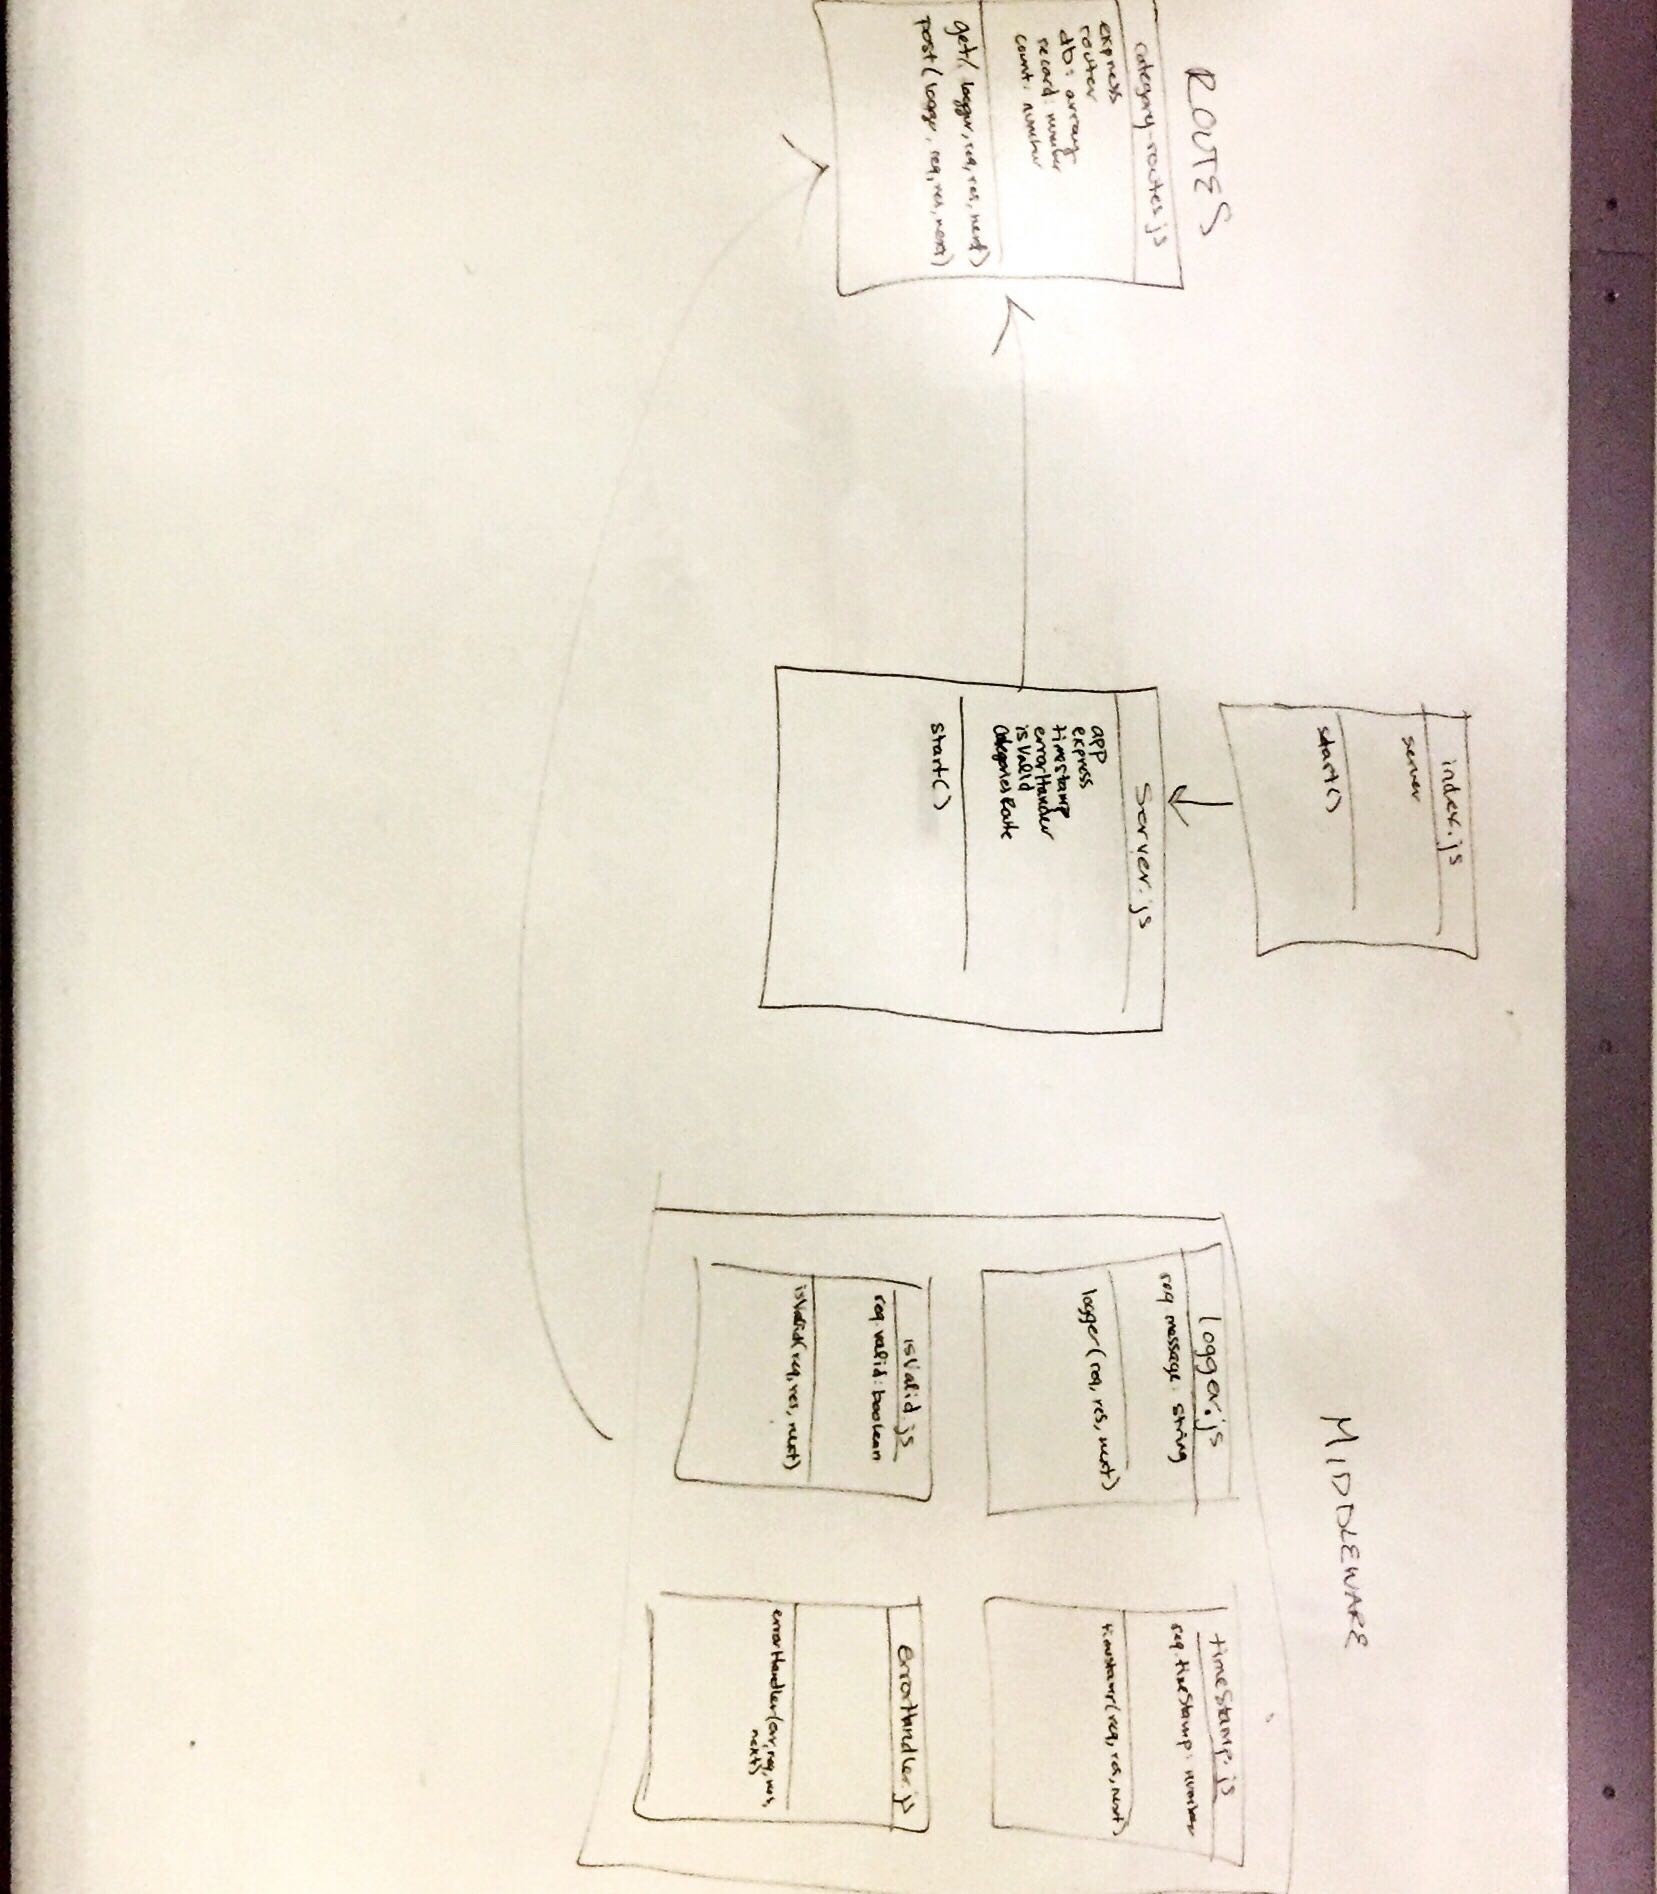 ROUTES
category-routes.js
express
router
db: array
record: number
count: number
get( logger, req, res, next)
post( logge, req, res, next)
index.js
server
start()
Server.js
app
express
timestamp
errorHandler
isValid
categoriesRoute
start()
MIDDLEWARE
logger.js
req. message: string
logger(req, res, next)
timeStamp.js
req.timeStamp: number
timestamp(req, res, next)
isValid.js
req.valid: boolean
isValid(req, res, next)
errorHandler.js
errorHandler(err, req, res,
next)